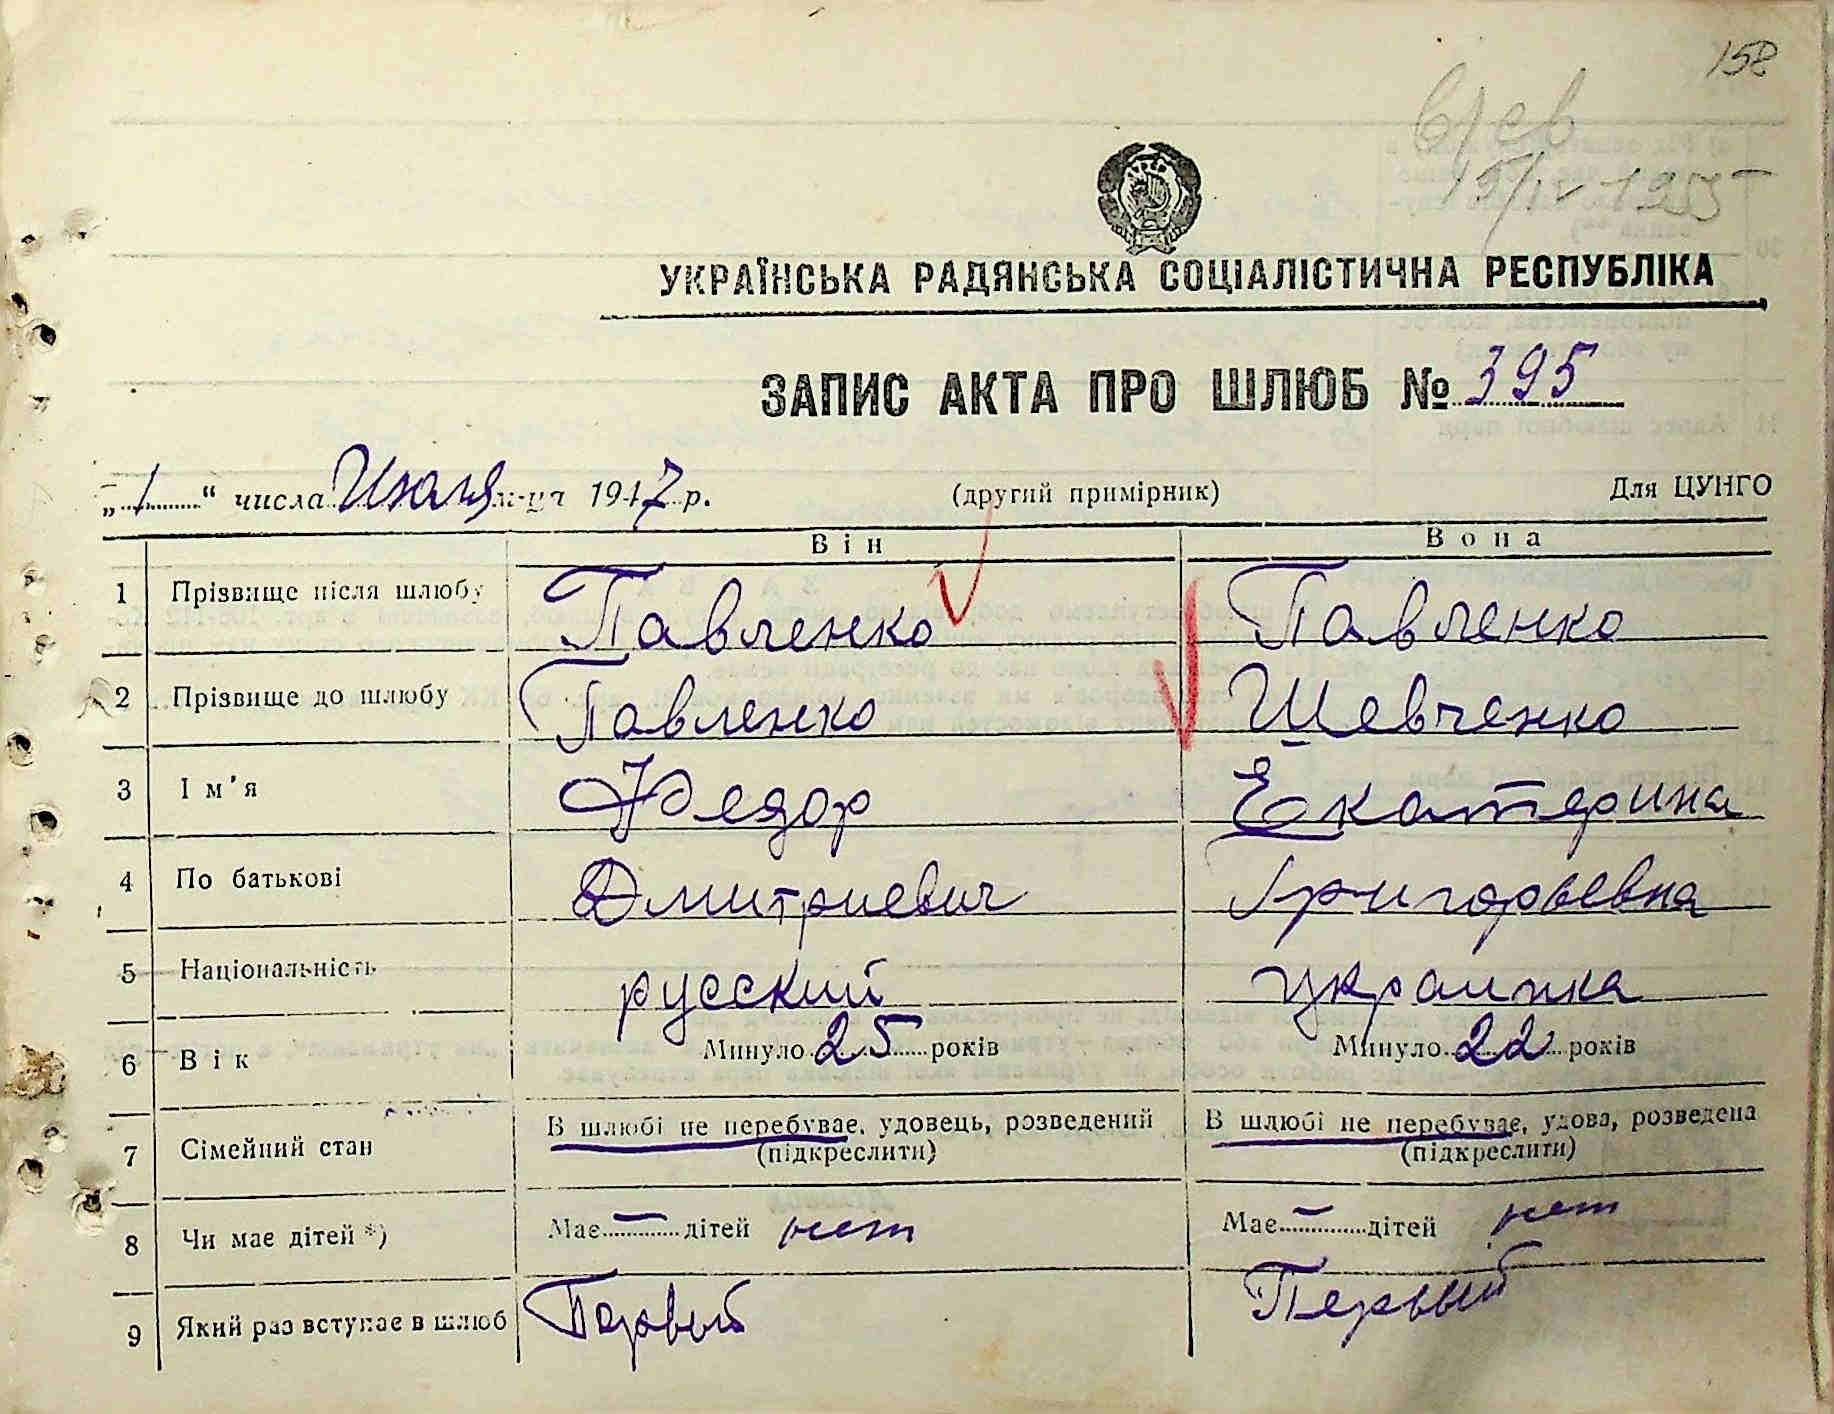 158
15/IV 1955
УКРАЇНСЬКА РАДЯНСЬКА СОЦІАЛІСТИЧНА РЕСПУБЛІКА
ЗАПИС АКТА ПРО ШЛЮБ № 395
„1“ числа Июля м-ця 1947 р. (другий примірник) Для ЦУНГО
Він Вона
1 Прізвище після шлюбу Павленко Павленко
2 Прізвище до шлюбу Павленко Шевченко
3 Ім'я Федор Екатерина
4 По батькові Дмитриевич Григорьевна
5 Національність русский украинка
6 Вік Минуло 25 років Минуло 22 років
7 Сімейний стан В шлюбі не перебуває, удовець, розведений (підкреслити) В шлюбі не перебуває, удова, розведена (підкреслити)
8 Чи має дітей *) Має — дітей нет Має — дітей нет
9 Який раз вступає в шлюб Первый Первый